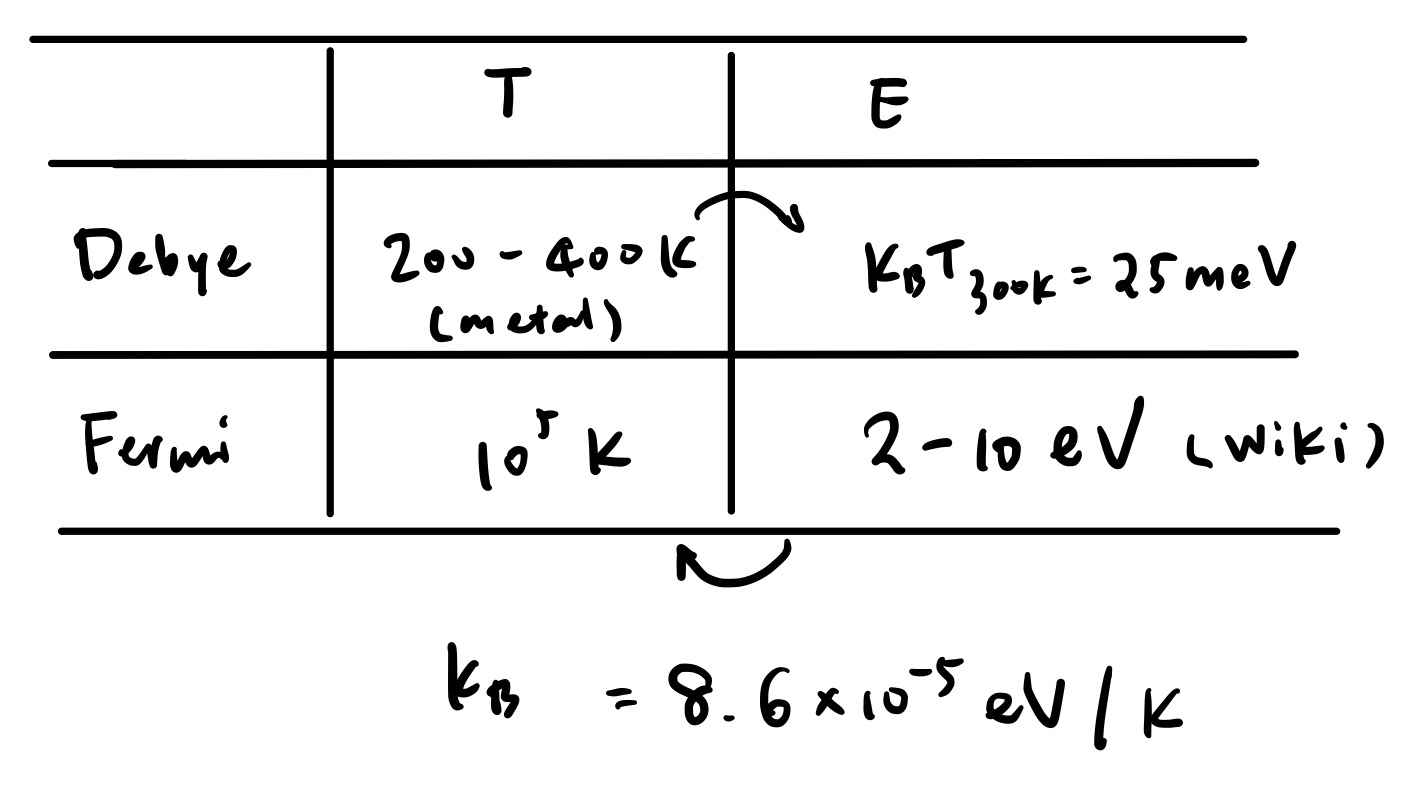 T E
Debye 200 - 400K K_BT_300K = 25meV
(metal)
Fermi 10^5 K 2-10 eV (wiki)
k_B = 8.6×10^-5 eV/K